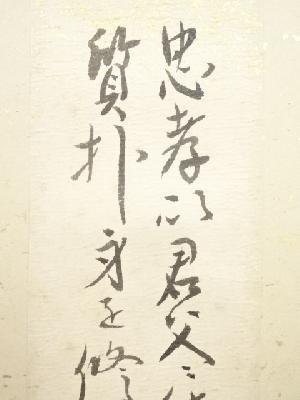 忠孝以君父ニ
質朴身を修